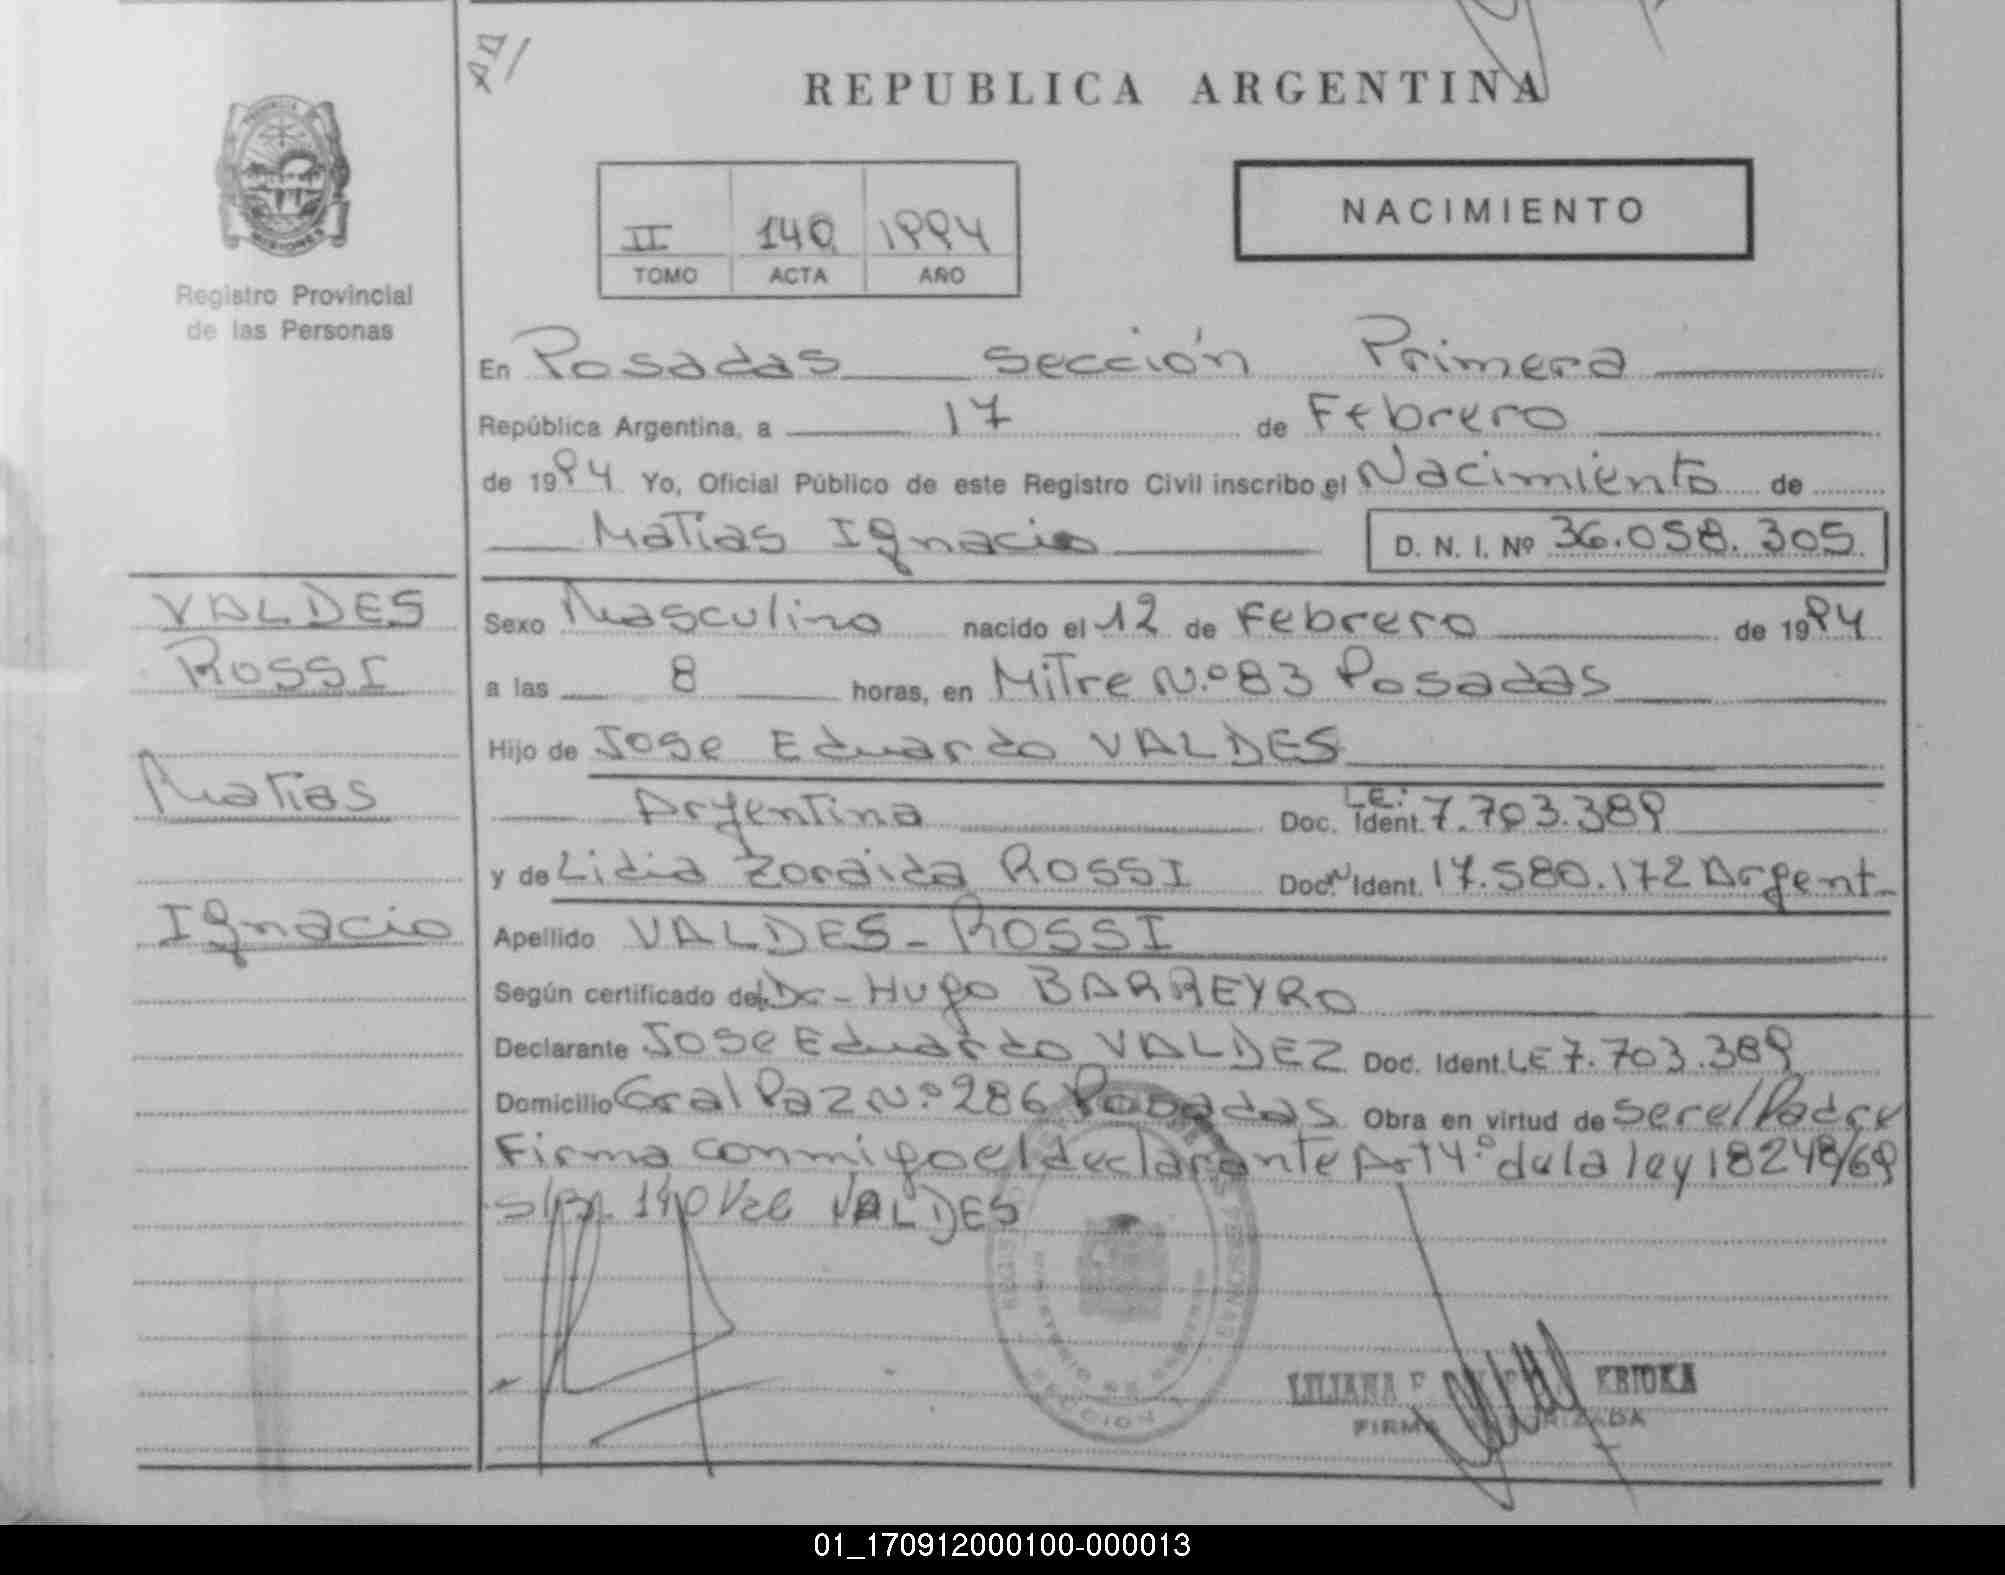 REPUBLICA ARGENTINA
II 140 1994
TOMO ACTA AÑO
NACIMIENTO
Registro Provincial
de las Personas
En Posadas sección Primera
República Argentina, a 17 de Febrero
de 1994 Yo, Oficial Público de este Registro Civil inscribo el Nacimiento de
Matias Ignacio D. N. I. Nº 36.058.305
VALDES
ROSSI
Matias
Ignacio
Sexo Masculino nacido el 12 de Febrero de 1994
a las 8 horas, en Mitre N.º 83 Posadas
Hijo de Jose Eduardo VALDES
Argentina Doc. Ident. L.E: 7.703.389
y de Lidia Zoraida ROSSI Doc. Ident. 17.580.172 Argent
Apellido VALDES - ROSSI
Según certificado del Dr - Hugo BARREYRO
Declarante Jose Eduardo VALDEZ Doc. Ident. LE 7.703.389
Domicilio Gral Paz N.º 286 Posadas Obra en virtud de ser el Padre
Firma conmigo el declarante Art 4.º de la ley 18248/69
S/R 140 Vale VALDES
LILIANA
FIRMA AUTORIZADA
01_170912000100-000013